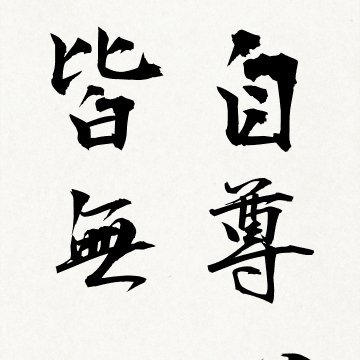 自尊
皆無